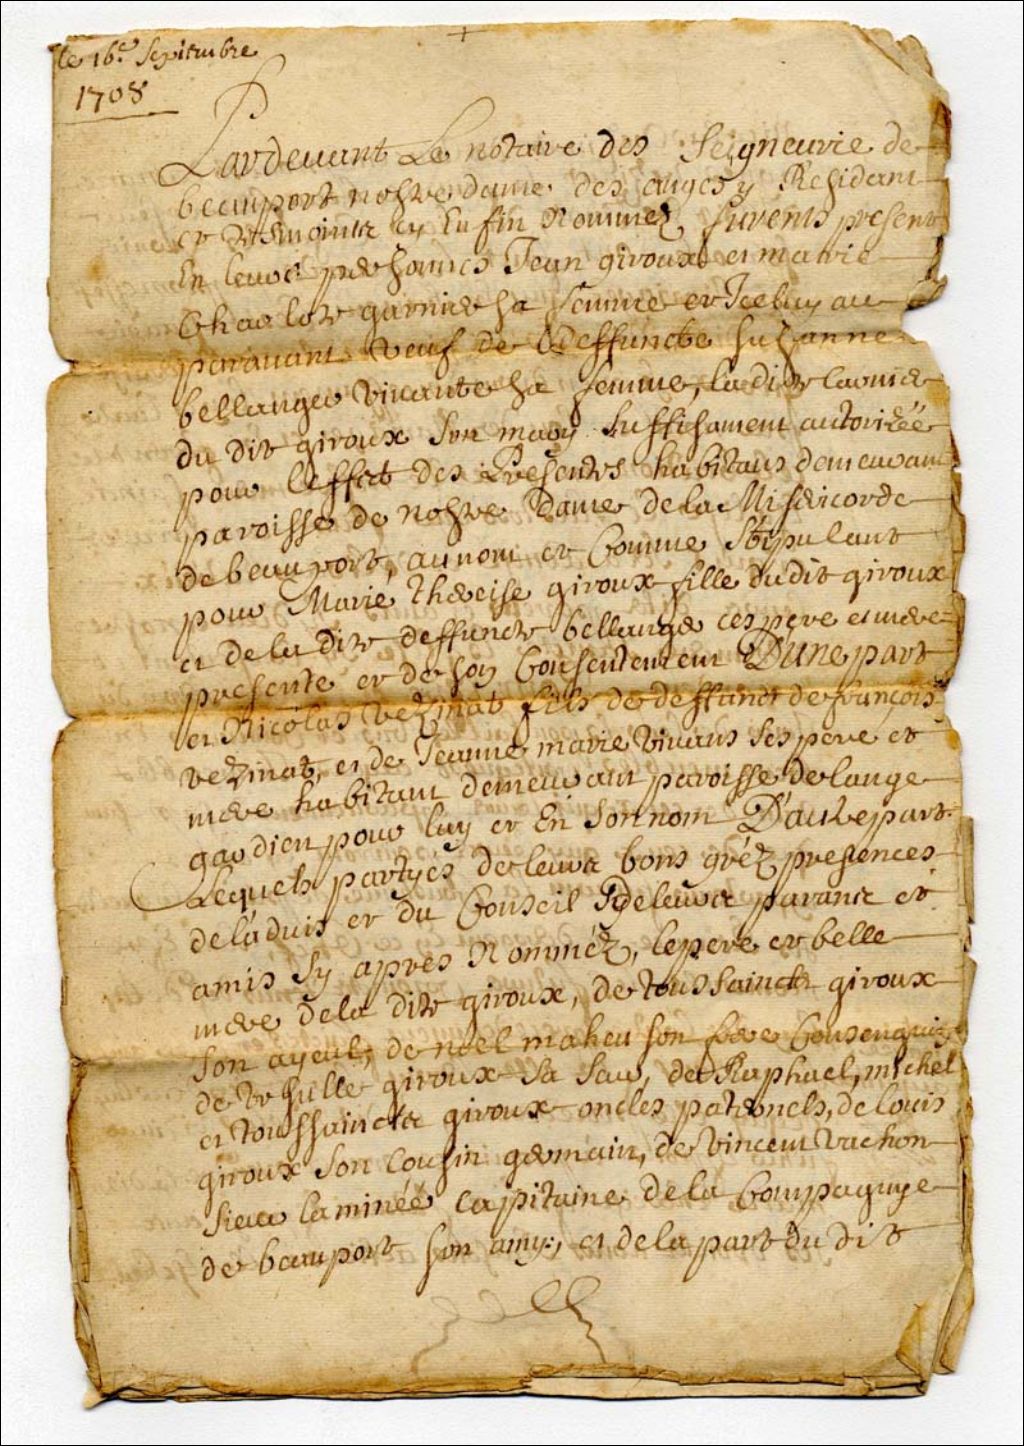 le 16e. Septembre
1708
Pardevant Le notaire des Seigneurie de
beauport nostre dame des anges y Residant
et tesmoints cy En fin Nommez, furents present
En leurs personnes Jean giroux et marie
Charlote garnier sa femme et Iceluy au
paravant veuf de deffuncte Suzanne
bellanger vivante sa femme, la dite
du dit giroux son mary suffisament autorizée
pour leffect des Presentes habitans demeurant
paroisse de nostre Dame de la Misericorde
de beauport, au nom et Comme Stipulant
pour Marie thereise giroux fille du dit giroux
et de la dite deffuncte bellanger ces pere et mere
presente et de son Consentement D'une part
et Nicolas vezinat fils de deffunct de françois
vezinat, et de Jeanne marie vivans ses pere et
mere habitant demeurant paroisse de lange
gardien pour luy et En son nom D'autre part.
Lequels partyes de leurs bons gréz presences
de láduis et du Conseil de leurs parants et
amis sy apres Nomméz, le pere et belle
mere de la dite giroux, de toussaincts giroux
son ayeul, de noel maheu son frere
de giroux sa seur, de Raphael, michel
et toussaincts giroux oncles paternels, de louis
giroux son cousin germain, de vincent vachon
sieur laminée Cappitaine de la Compagnye
de beauport son amy:, et de la part du dit